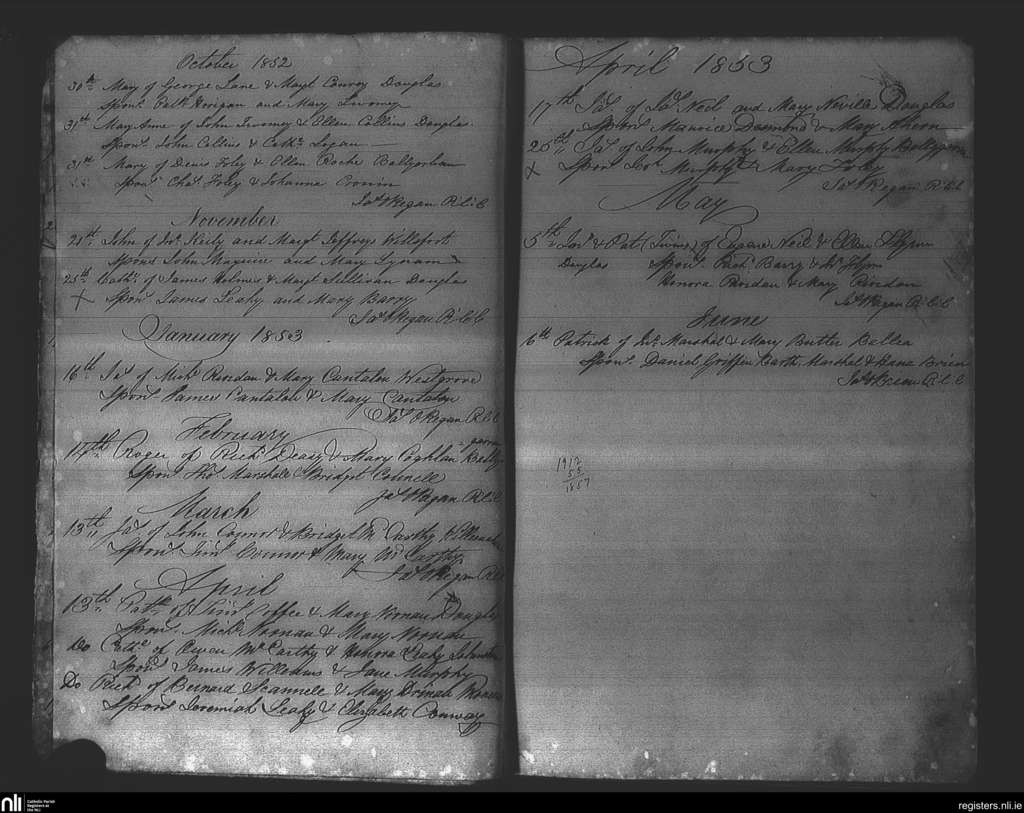 October 1852
30th Mary of George Lane & Margt Conroy Douglas
Sponrs Patk Horigan and Mary Twomey
31st Mary Anne of John Twomey & Ellen Collins Douglas
Sponrs John Collins & Cathe Logan
31st Mary of Denis Foley & Ellen Roche
Sponrs Chas Foley & Johanna Cronin
Jas O'Regan R.C.C
November
21st John of Jno Kiely and Margt Jeffreys
Sponrs John Maguire and Mary Lynam
25th Cathe of James Holmes & Margt Sullivan Douglas
X Sponrs James Leahy and Mary Barry
Jas O'Regan R.C.C
January 1853
16th Jas of Michl Riordan & Mary Cantalon Westgrove
Sponrs James Cantalon & Mary Cantalon
Jas O'Regan R.C.C
February
14th Roger of Richd Deasy & Mary Coghlan
Sponrs Thos Marshall & Bridget Connell
Jas O'Regan R.C.C
March
13th Jas of John Connor & Bridget McCarthy
Sponrs Timt Connor & Mary McCarthy
Jas O'Regan R.C.C
April
13th Patk of Timt Coffee & Mary Noonan Douglas
Sponrs Michl Noonan & Mary Noonan
Do Cathe of Owen McCarthy & Honora Leahy
Sponrs James Williams & Jane Murphy
Do Richd of Bernard Scannell & Mary Drinan
Sponrs Jeremiah Leahy & Elizabeth Conway
April 1853
17th Jas of Jas Neil and Mary Neville Douglas
Sponrs Maurice Desmond & Mary Ahern
25th Jas of John Murphy & Ellen Murphy
X Sponrs Murphy & Mary Foley
Jas O'Regan R.C.C
May
5th & Pat (Twins) of Eugene Neil & Ellen Flynn
Douglas Sponrs Richd Barry & Flynn
Honora Riordan & Mary Riordan
Jas O'Regan R.C.C
June
6th Patrick of Jno Marshal & Mary Butler
Sponrs Daniel Griffin Barth Marshal & Brien
R.C.C
1912
55
1857
nli
Catholic Parish
Registers at
the NLI
registers.nli.ie